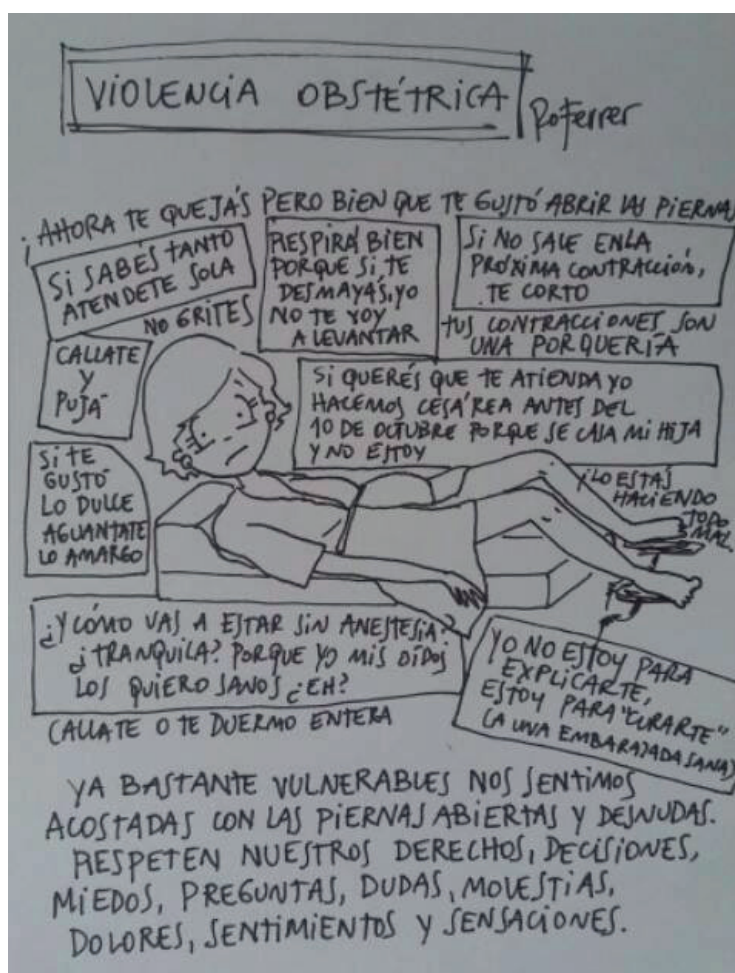 VIOLENCIA OBSTÉTRICA
RoFerrer
¡AHORA TE QUEJÁS PERO BIEN QUE TE GUSTÓ ABRIR LAS PIERNAS
SI SABÉS TANTO
ATENDETE SOLA
NO GRITES
RESPIRÁ BIEN
PORQUE SI TE
DESMAYÁS, YO
NO TE VOY
A LEVANTAR
SI NO SALE EN LA
PRÓXIMA CONTRACCIÓN,
TE CORTO
TUS CONTRACCIONES SON
UNA PORQUERÍA
CALLATE
Y
PUJÁ
SI QUERÉS QUE TE ATIENDA YO
HACEMOS CESÁREA ANTES DEL
10 DE OCTUBRE PORQUE SE CASA MI HIJA
Y NO ESTOY
SI TE
GUSTÓ
LO DULCE
AGUANTATE
LO AMARGO
¡LO ESTÁS
HACIENDO
TODO
MAL.
¿Y CÓMO VAS A ESTAR SIN ANESTESIA?
¿TRANQUILA? PORQUE YO MIS OÍDOS
LOS QUIERO SANOS ¿EH?
CALLATE O TE DUERMO ENTERA
YO NO ESTOY PARA
EXPLICARTE,
ESTOY PARA "CURARTE"
(A UNA EMBARAZADA SANA)
YA BASTANTE VULNERABLES NOS SENTIMOS
ACOSTADAS CON LAS PIERNAS ABIERTAS Y DESNUDAS.
RESPETEN NUESTROS DERECHOS, DECISIONES,
MIEDOS, PREGUNTAS, DUDAS, MOLESTIAS,
DOLORES, SENTIMIENTOS Y SENSACIONES.